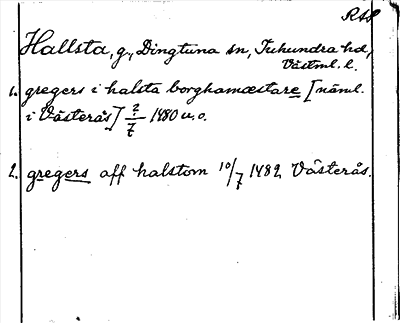 RAä
Hallsta, g., Dingtuna sn, Tuhundra hd,
Västml. l.
1. gregers i halsta borghamæstare [näml.
i Västerås] 2/7 1480 u.o.
2. gregers aff halstom 10/7 1482 Västerås.